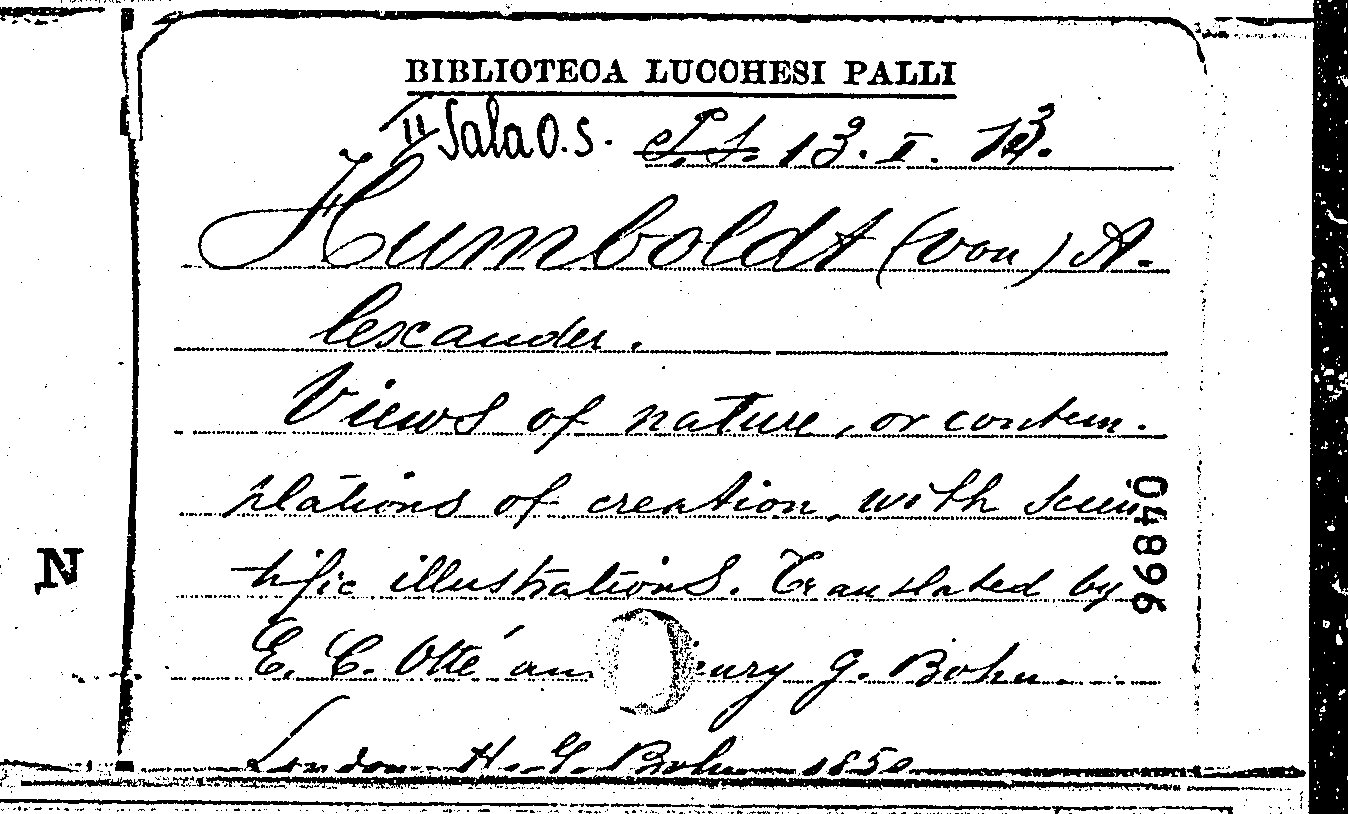 BIBLIOTECA LUCCHESI PALLI
II Sala O.S. 13. I.
Humboldt (von) A-
lexander.
Views of nature, or contem-
plations of creation, with scien-
tific illustrations. Translated by
E. C. Otté and Henry G. Bohn.
London H. G. Bohn 1850
N
04896